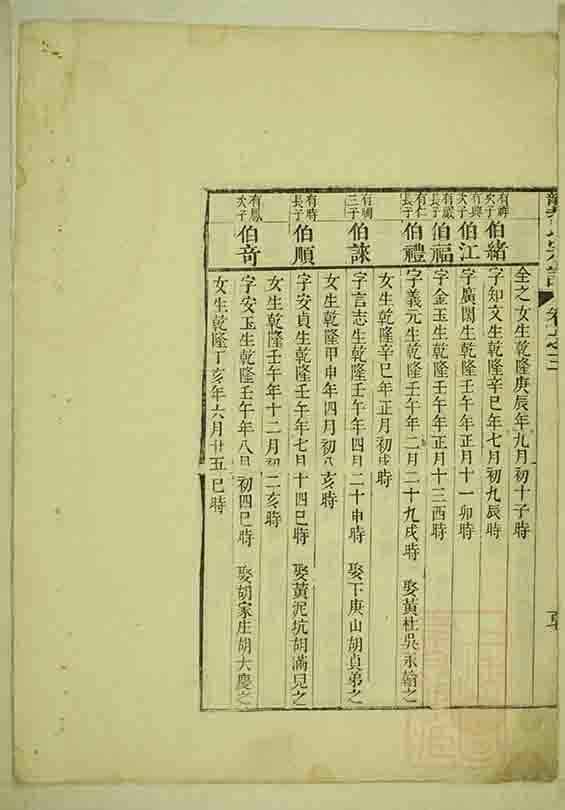 宗譜
卷之三
全之女生乾隆庚辰年九月初十子時
次子
伯緒
字知文生乾隆辛巳年七月初九辰時
有興
次子
伯江
字廣閣生乾隆壬午年正月十一卯時
有嚴
長子
伯福
字金玉生乾隆壬午年正月十三酉時
有仁
長子
伯禮
字義元生乾隆壬午年二月二十九戌時 娶黃杜吳永翰之
女生乾隆辛巳年正月初 時
三子
伯
字言志生乾隆壬午年四月二十申時 娶下庚山胡貞弟之
女生乾隆甲申年四月初八亥時
有時
長子
伯順
字安貞生乾隆壬午年七月十四巳時 娶黃泥坑胡滿兒之
女生乾隆壬午年十二月初二亥時
有鳳
次子
伯奇
字安玉生乾隆壬午年八月初四巳時 娶胡家庄胡大慶之
女生乾隆丁亥年六月廿五巳時